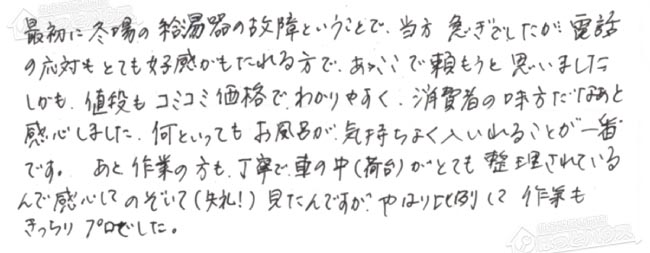 最初に冬場の給湯器の故障ということで、当方 急ぎでしたが、電話
の応対もとても好感がもたれる方で、あゝここで頼もうと思いました
しかも、値段もコミコミ価格で、わかりやすく、消費者の味方だなあと
感心しました。何といってもお風呂が、気持ちよく入いれることが一番
です。 あと作業の方も、丁寧で、車の中(荷台)がとても整理されている
んで感心してのぞいて(失礼!)見たんですが、やはり比例して作業も
きっちりプロでした。